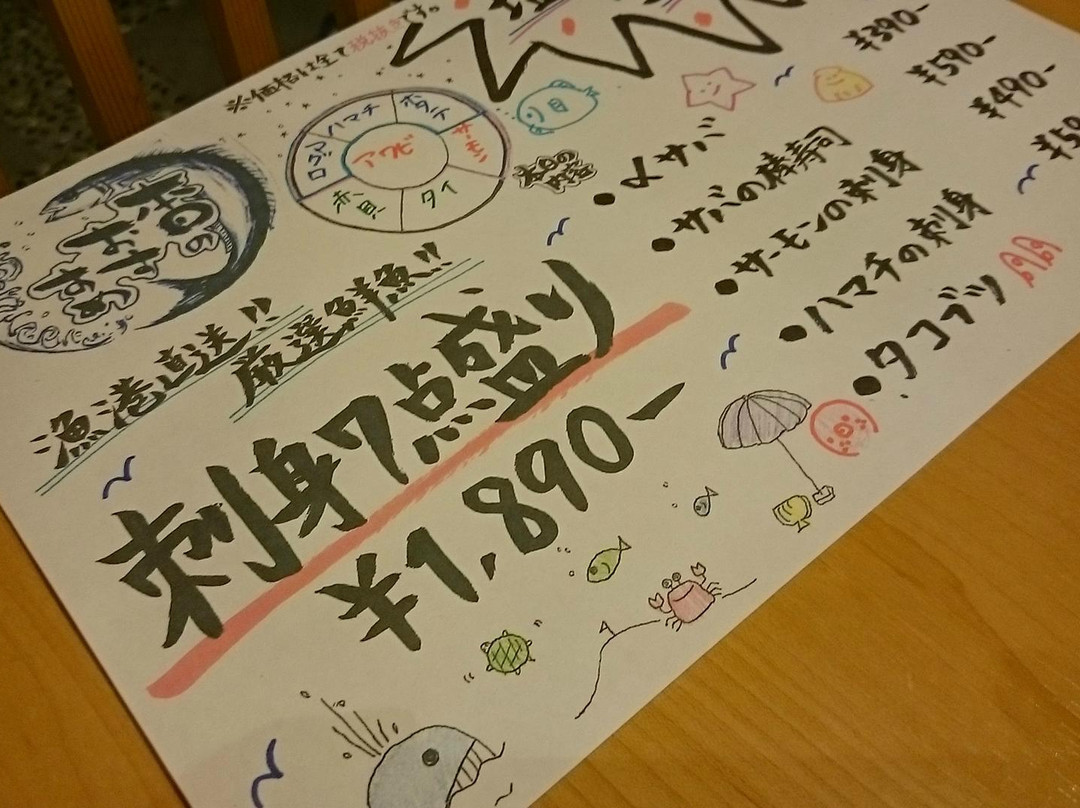 ※価格は全て税抜きです。
本日の
おすすめ
ハマチ
ホタテ
サーモン
タイ
赤貝
ロブマ
アワビ
本日の
内容
漁港直送!!
厳選鮮魚!!
刺身7点盛り
¥1,890-
•〆サバ
¥390-
•サバの棒寿司
¥590-
•サーモンの刺身
¥490-
•ハマチの刺身
•タコブツ